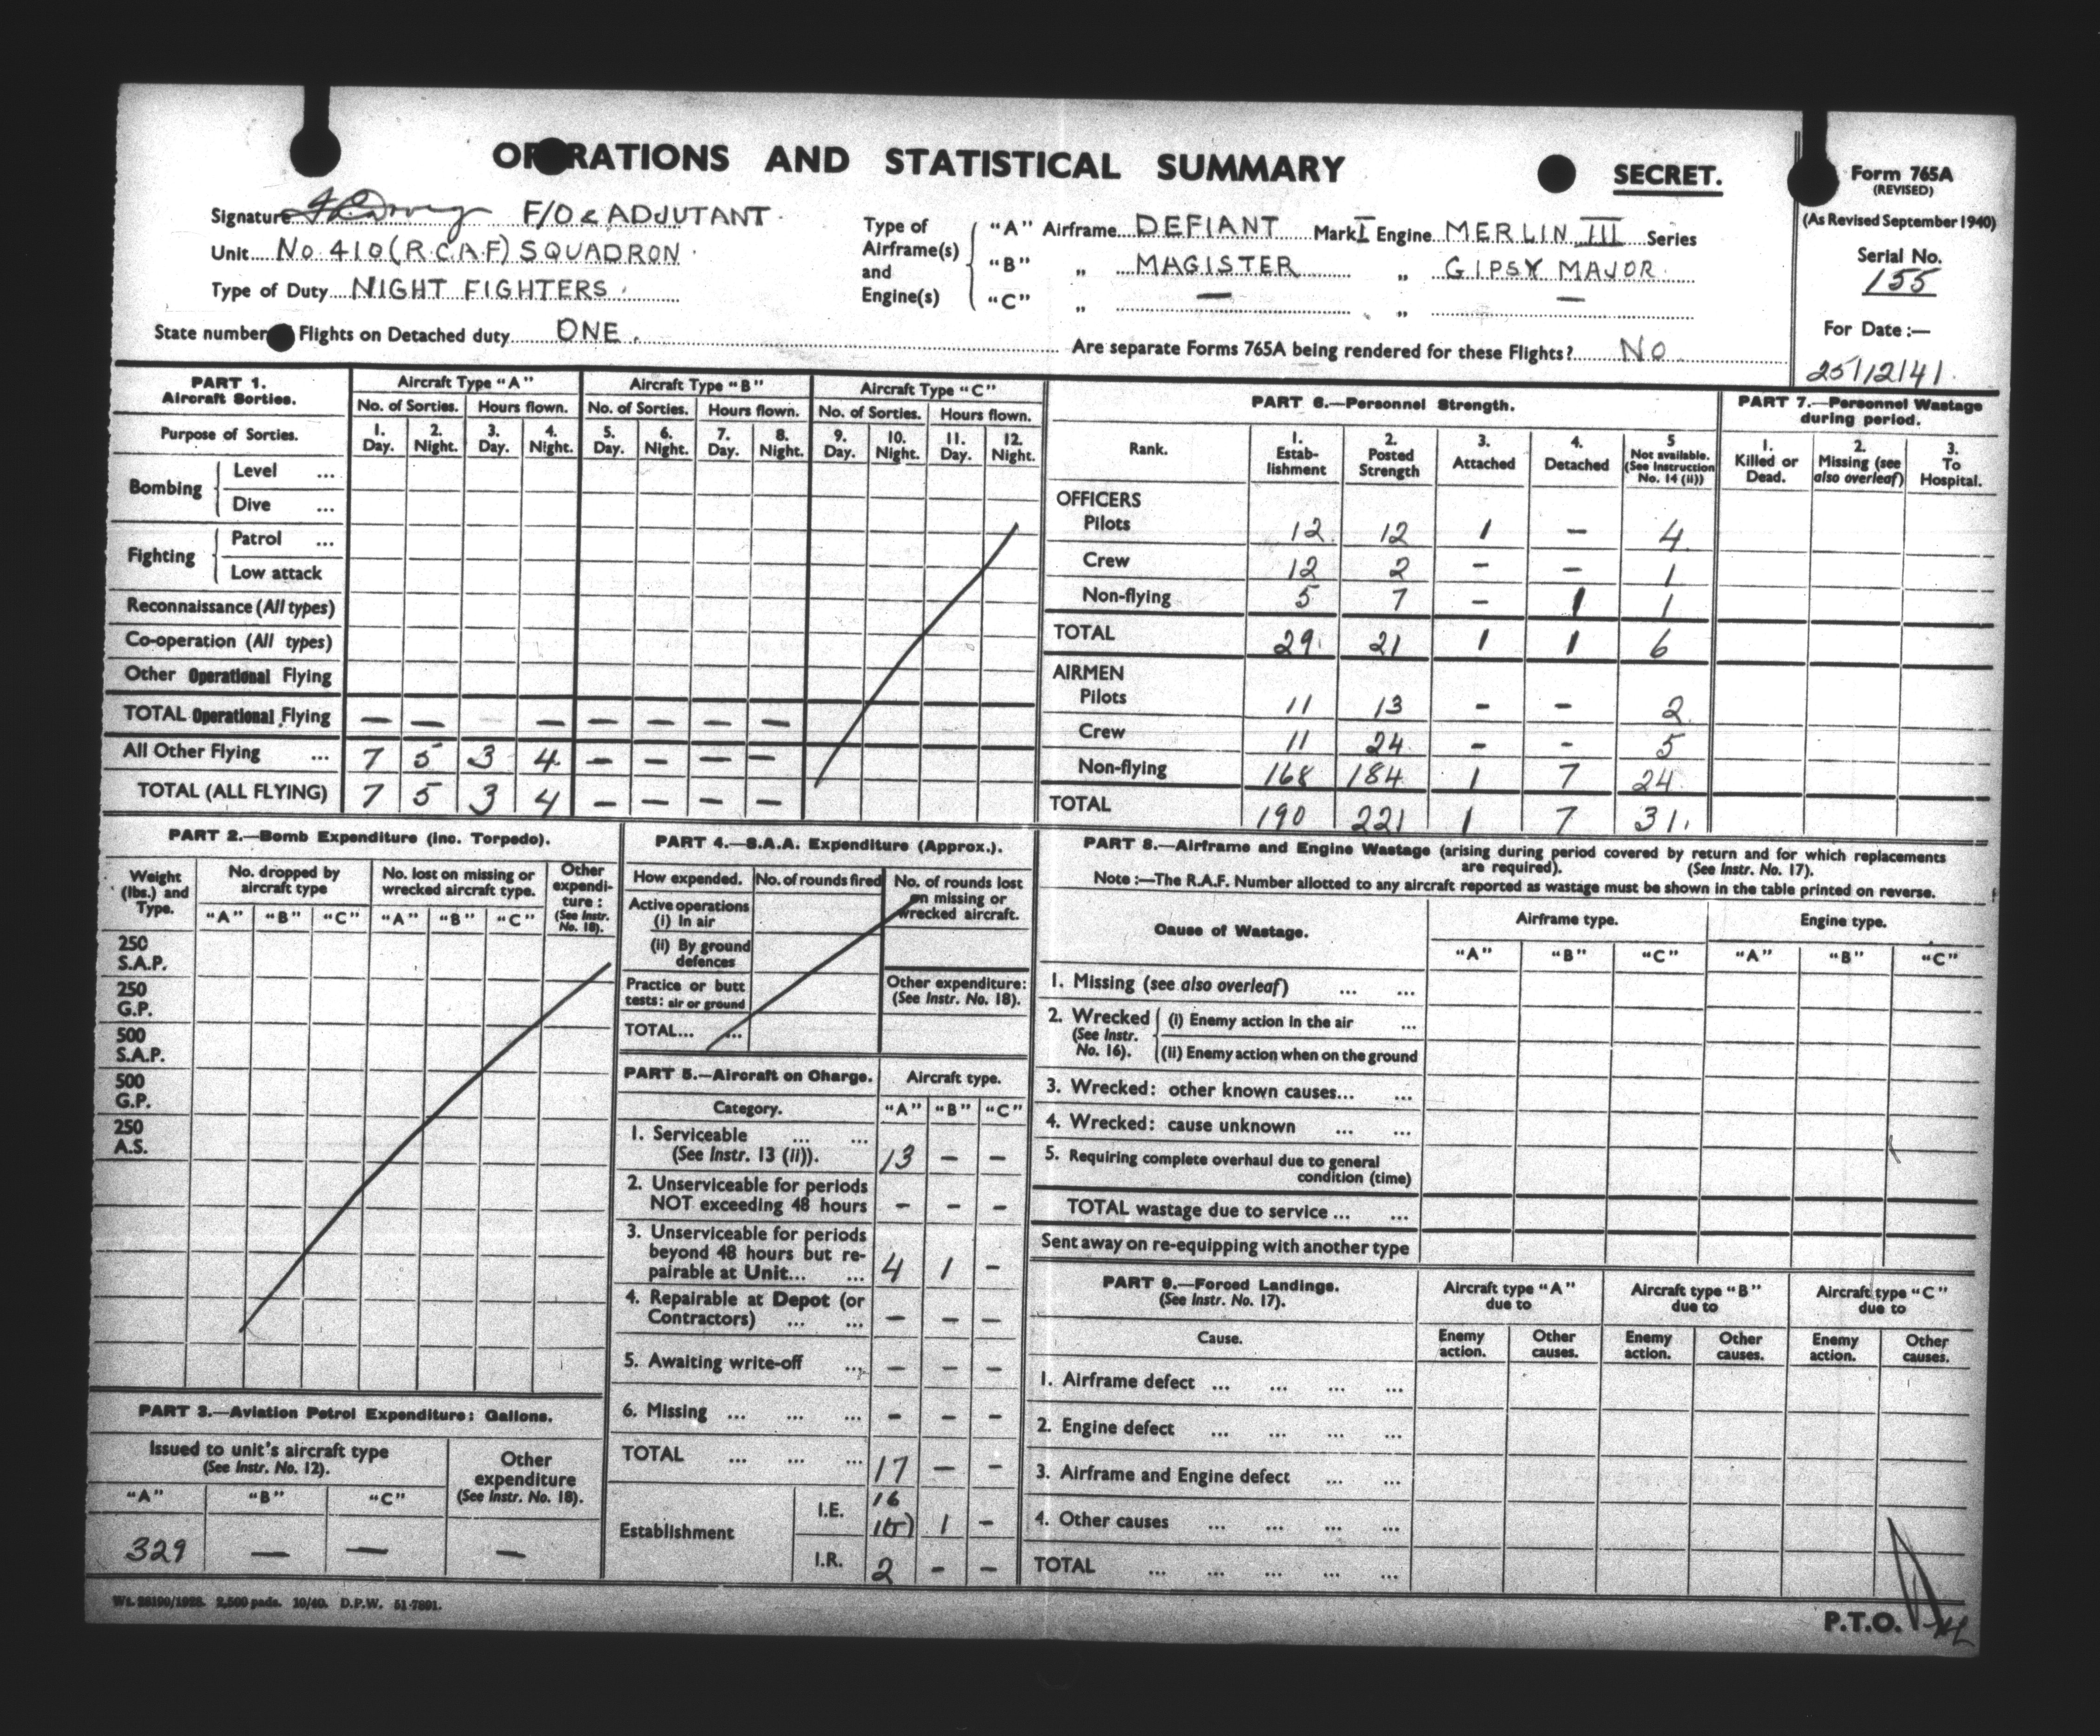 OPERATIONS AND STATISTICAL SUMMARY
SECRET.
Form 765A
(REVISED)
(As Revised September 1940)
Serial No.
155
For Date :—
25/12/41.
Signature F/O & ADJUTANT.
Unit No. 410 (R.C.A.F) SQUADRON.
Type of Duty NIGHT FIGHTERS.
State number Flights on Detached duty ONE.
Type of Airframe(s) and Engine(s)
"A" Airframe DEFIANT Mark I Engine MERLIN III Series
"B" „ MAGISTER „ GIPSY MAJOR.
"C" „ — „ —
Are separate Forms 765A being rendered for these Flights? NO
PART 1.
Aircraft Sorties.
Aircraft Type "A" Aircraft Type "B" Aircraft Type "C"
No. of Sorties. Hours flown. No. of Sorties. Hours flown. No. of Sorties. Hours flown.
Purpose of Sorties.
1. Day. 2. Night. 3. Day. 4. Night. 5. Day. 6. Night. 7. Day. 8. Night. 9. Day. 10. Night. 11. Day. 12. Night.
Bombing
Level ...
Dive ...
Fighting
Patrol ...
Low attack
Reconnaissance (All types)
Co-operation (All types)
Other Operational Flying
TOTAL Operational Flying — — — — — — —
All Other Flying ... 7 5 3 4 — — — —
TOTAL (ALL FLYING) 7 5 3 4 — — — —
PART 6.—Personnel Strength.
Rank. 1. Establishment 2. Posted Strength 3. Attached 4. Detached 5 Not available. (See Instruction No. 14 (ii))
OFFICERS
Pilots 12 12 1 – 4
Crew 12 2 – – 1
Non-flying 5 7 – 1 1
TOTAL 29 21 1 1 6
AIRMEN
Pilots 11 13 – – 2
Crew 11 24 – – 5
Non-flying 168 184 1 7 24
TOTAL 190 221 1 7 31
PART 7.—Personnel Wastage during period.
1. Killed or Dead. 2. Missing (see also overleaf) 3. To Hospital.
PART 2.—Bomb Expenditure (inc. Torpedo).
Weight (lbs.) and Type.
No. dropped by aircraft type
No. lost on missing or wrecked aircraft type.
Other expenditure : (See Instr. No. 18).
"A" "B" "C" "A" "B" "C"
250 S.A.P.
250 G.P.
500 S.A.P.
500 G.P.
250 A.S.
PART 3.—Aviation Petrol Expenditure: Gallons.
Issued to unit's aircraft type
(See Instr. No. 12).
Other expenditure
(See Instr. No. 18).
"A" "B" "C"
329 — — —
PART 4.—S.A.A. Expenditure (Approx.).
How expended. No. of rounds fired No. of rounds lost on missing or wrecked aircraft.
Active operations
(i) In air
(ii) By ground defences
Practice or butt tests: air or ground
Other expenditure:
(See Instr. No. 18).
TOTAL... ...
PART 5.—Aircraft on Charge. Aircraft type.
Category. "A" "B" "C"
1. Serviceable ... ...
(See Instr. 13 (ii)). 13 – –
2. Unserviceable for periods
NOT exceeding 48 hours – – –
3. Unserviceable for periods
beyond 48 hours but re-
pairable at Unit... ... 4 1 –
4. Repairable at Depot (or
Contractors) ... ... – – –
5. Awaiting write-off ... – – –
6. Missing ... ... ... – – –
TOTAL ... ... ... 17 – –
Establishment
I.E. 16 1 –
I.R. 2 – –
PART 8.—Airframe and Engine Wastage (arising during period covered by return and for which replacements
are required). (See Instr. No. 17).
Note :—The R.A.F. Number allotted to any aircraft reported as wastage must be shown in the table printed on reverse.
Cause of Wastage. Airframe type. Engine type.
"A" "B" "C" "A" "B" "C"
1. Missing (see also overleaf) ... ...
2. Wrecked (See Instr. No. 16).
(i) Enemy action in the air ...
(ii) Enemy action when on the ground
3. Wrecked: other known causes... ...
4. Wrecked: cause unknown ... ...
5. Requiring complete overhaul due to general
condition (time)
TOTAL wastage due to service ... ...
Sent away on re-equipping with another type
PART 9.—Forced Landings.
(See Instr. No. 17).
Aircraft type "A" due to Aircraft type "B" due to Aircraft type "C" due to
Cause. Enemy action. Other causes. Enemy action. Other causes. Enemy action. Other causes.
1. Airframe defect ... ... ... ...
2. Engine defect ... ... ... ...
3. Airframe and Engine defect ... ...
4. Other causes ... ... ... ...
TOTAL ... ... ... ... ...
Wt. 28190/1928. 2,500 pads. 10/40. D.P.W. 51-7891.
P.T.O.